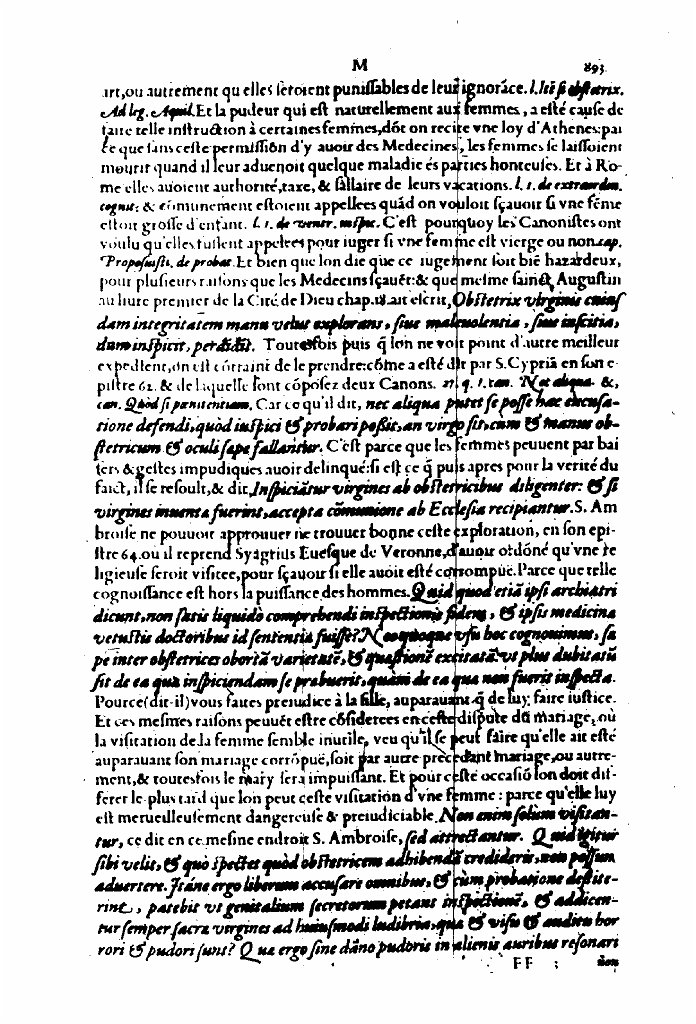 M 893
art, ou autrement qu elles seroient punissables de leur ignorãce. l. Itẽ si obstetrix.
Ad leg. Aquil. Et la pudeur qui est naturellement aux femmes, a esté cause de
faire telle instruction à certaines femmes, dõt on recite vne loy d'Athenes: par
ce que sans ceste permission d'y auoir des Medecines, les femmes se laissoient
mourir quand il leur aduenoit quelque maladie és parties honteuses. Et à Ro-
me elles auoient authorité, taxe, & sallaire de leurs vacations. l. 1. de extraordin.
cognit: & cõmunement estoient appellees quãd on vouloit sçauoir si vne fẽme
estoit grosse d'enfant. l. 1. de ventr. inspic. C'est pourquoy les Canonistes ont
voulu qu'elles fussent appelees pour iuger si vne femme est vierge ou non. cap.
Proposuisti. de probat. Et bien que lon die que ce iugement soit biẽ hazardeux,
pour plusieurs raisons que les Medecins sçauẽt: & que mesme sainct Augustin
au liure premier de la Cité de Dieu chap. 18. ait escrit, Obstetrix virginis cuius
dam integritatem manu velut explorans, siue maleuolentia, siue inscitia,
dum inspicit, perdidit. Toutesfois puis q̃ lon ne voit point d'autre meilleur
expedient, on est cõtraint de le prendre: cõme a esté dit par S. Cypriã en son e-
pistre 62. & de laquelle sont cõposez deux Canons. 27. q. 1. can. Nec aliqua. &,
can. Quòd si pœnitentiam. Car ce qu'il dit, nec aliqua putet se posse hac excusa-
tione defendi, quòd inspici & probari possit, an virgo sit, cum & manus ob-
stetricum & oculi sæpe fallantur. C'est parce que les femmes peuuent par bai
sers & gestes impudiques auoir delinqué: si est ce q̃ puis apres pour la verité du
faict, il se resoult, & dit, Inspiciãtur virgines ab obstetricibus diligenter: & si
virgines inuenta fuerint, accepta cõmunione ab Ecclesia recipiantur. S. Am
broise ne pouuoit approuuer ne trouuer bonne ceste exploration, en son epi-
stre 64. ou il reprend Syagrius Euesque de Veronne, d'auoir ordõné qu'vne re
ligieuse seroit visitee, pour sçauoir si elle auoit esté corrompuë. Parce que telle
cognoissance est hors la puissance des hommes. Quid quod etiã ipsi archiatri
dicunt, non satis liquidò comprehendi inspectionis fidem, & ipsis medicinæ
vetustis doctoribus id sententiæ fuisse? Nos quoque vsu hoc cognouimus, sæ
pe inter obstetrices obortã varietatẽ, & quæstionẽ excitatã: vt plus dubitatũ
sit de ea quæ inspiciendam se præbuerit, quàm de ea quæ non fuerit inspecta.
Pource (dit-il) vous faites preiudice à la fille, auparauant q̃ de luy faire iustice.
Et ces mesmes raisons peuuẽt estre cõsiderees en ceste dispute du mariage, où
la visitation de la femme semble inutile, veu qu'il se peut faire qu'elle ait esté
auparauant son mariage corrõpuë, soit par autre precedant mariage, ou autre-
ment, & toutesfois le mary sera impuissant. Et pour ceste occasiõ lon doit dif-
ferer le plus tard que lon peut ceste visitation d'vne femme: parce qu'elle luy
est merueilleusement dangereuse & preiudiciable. Non enim solum visitan-
tur, ce dit en ce mesme endroit S. Ambroise, sed attrectantur. Quid igitur
sibi velit, & quò spectet quòd obstetricem adhibendã credideris, non possum
aduertere. Itáne ergo liberum accusare omnibus, & cùm probatione destite-
rint, patebit vt genitalium secretorum petant inspectionẽ, & addicen-
tur semper sacræ virgines ad huiusmodi ludibria, quæ & visu & auditu hor
rori & pudori sunt? Quæ ergo sine dãno pudoris in alienis auribus resonari
FF ;
non